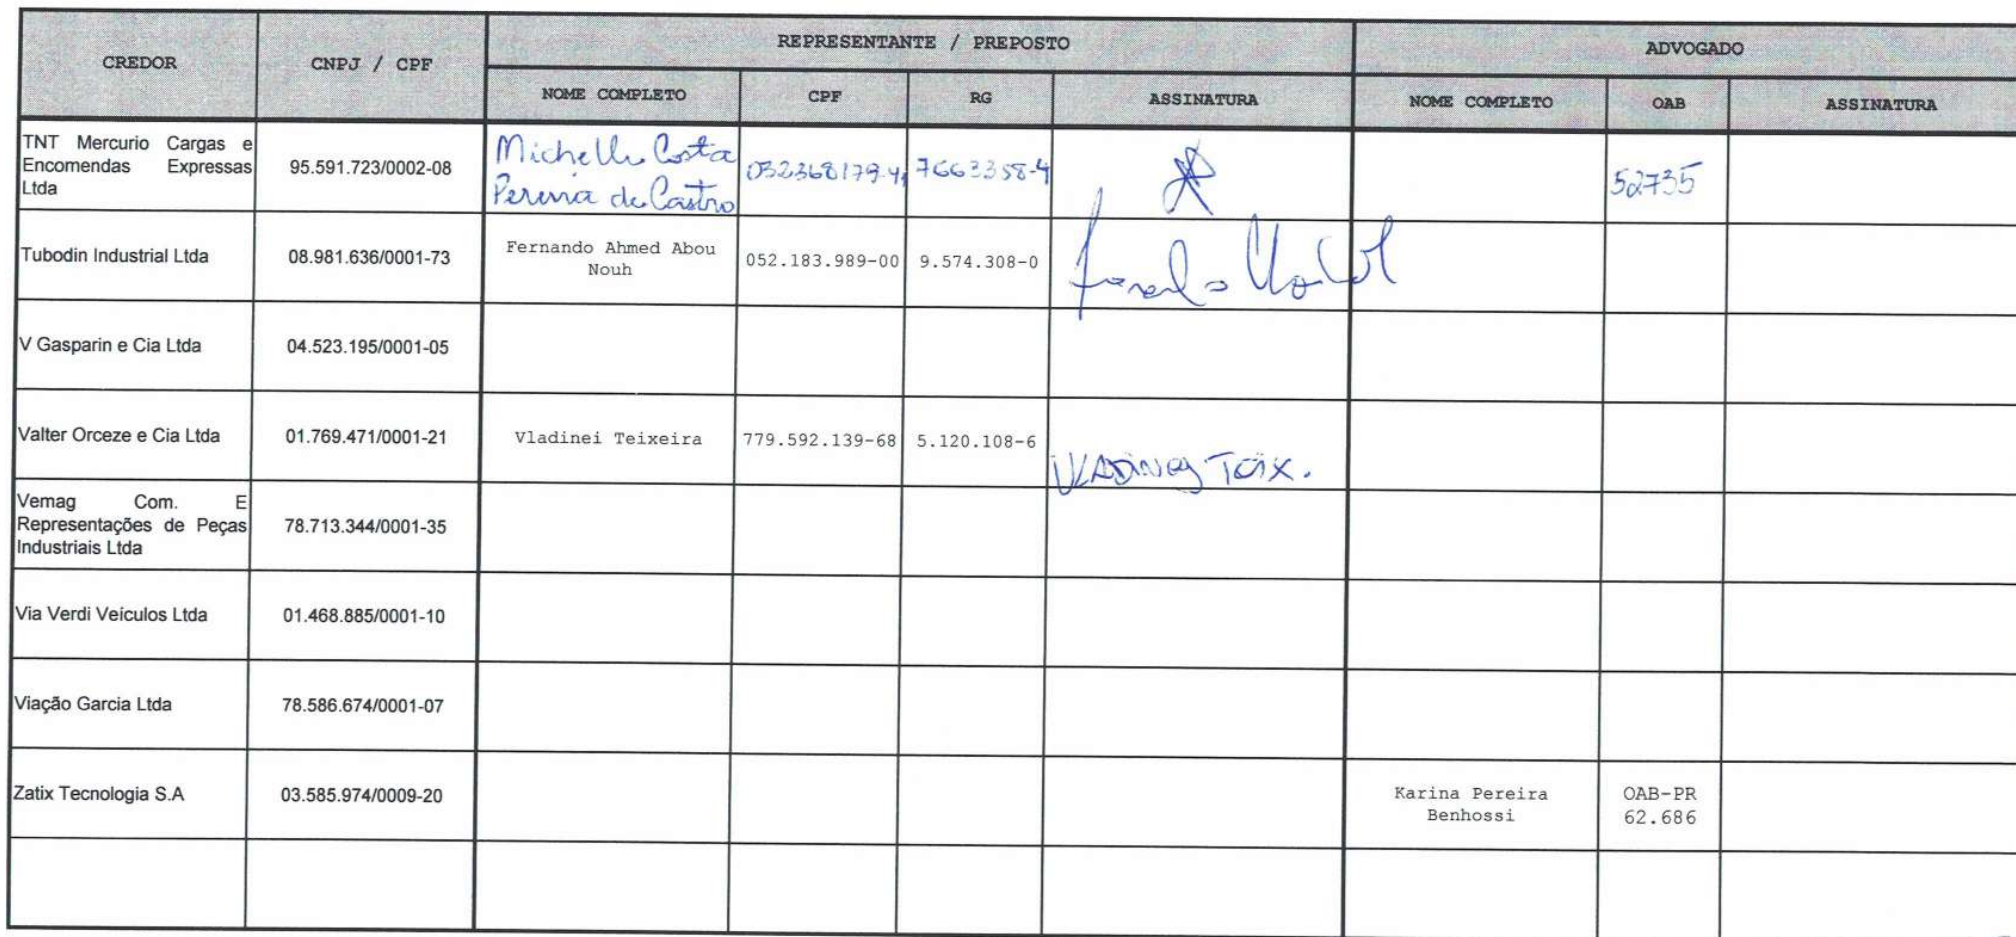 REPRESENTANTE / PREPOSTO
ADVOGADO
CREDOR
CNPJ / CPF
NOME COMPLETO
CPF
RG
ASSINATURA
NOME COMPLETO
OAB
ASSINATURA
TNT Mercurio Cargas e
Encomendas Expressas
Ltda
95.591.723/0002-08
Michelle Costa
Pereira de Castro
7663358-4
52735
Tubodin Industrial Ltda
08.981.636/0001-73
Fernando Ahmed Abou
Nouh
052.183.989-00
9.574.308-0
V Gasparin e Cia Ltda
04.523.195/0001-05
Valter Orceze e Cia Ltda
01.769.471/0001-21
Vladinei Teixeira
779.592.139-68
5.120.108-6
VLADINEY TEIX.
Vemag Com. E
Representações de Peças
Industriais Ltda
78.713.344/0001-35
Via Verdi Veículos Ltda
01.468.885/0001-10
Viação Garcia Ltda
78.586.674/0001-07
Zatix Tecnologia S.A
03.585.974/0009-20
Karina Pereira
Benhossi
OAB-PR
62.686